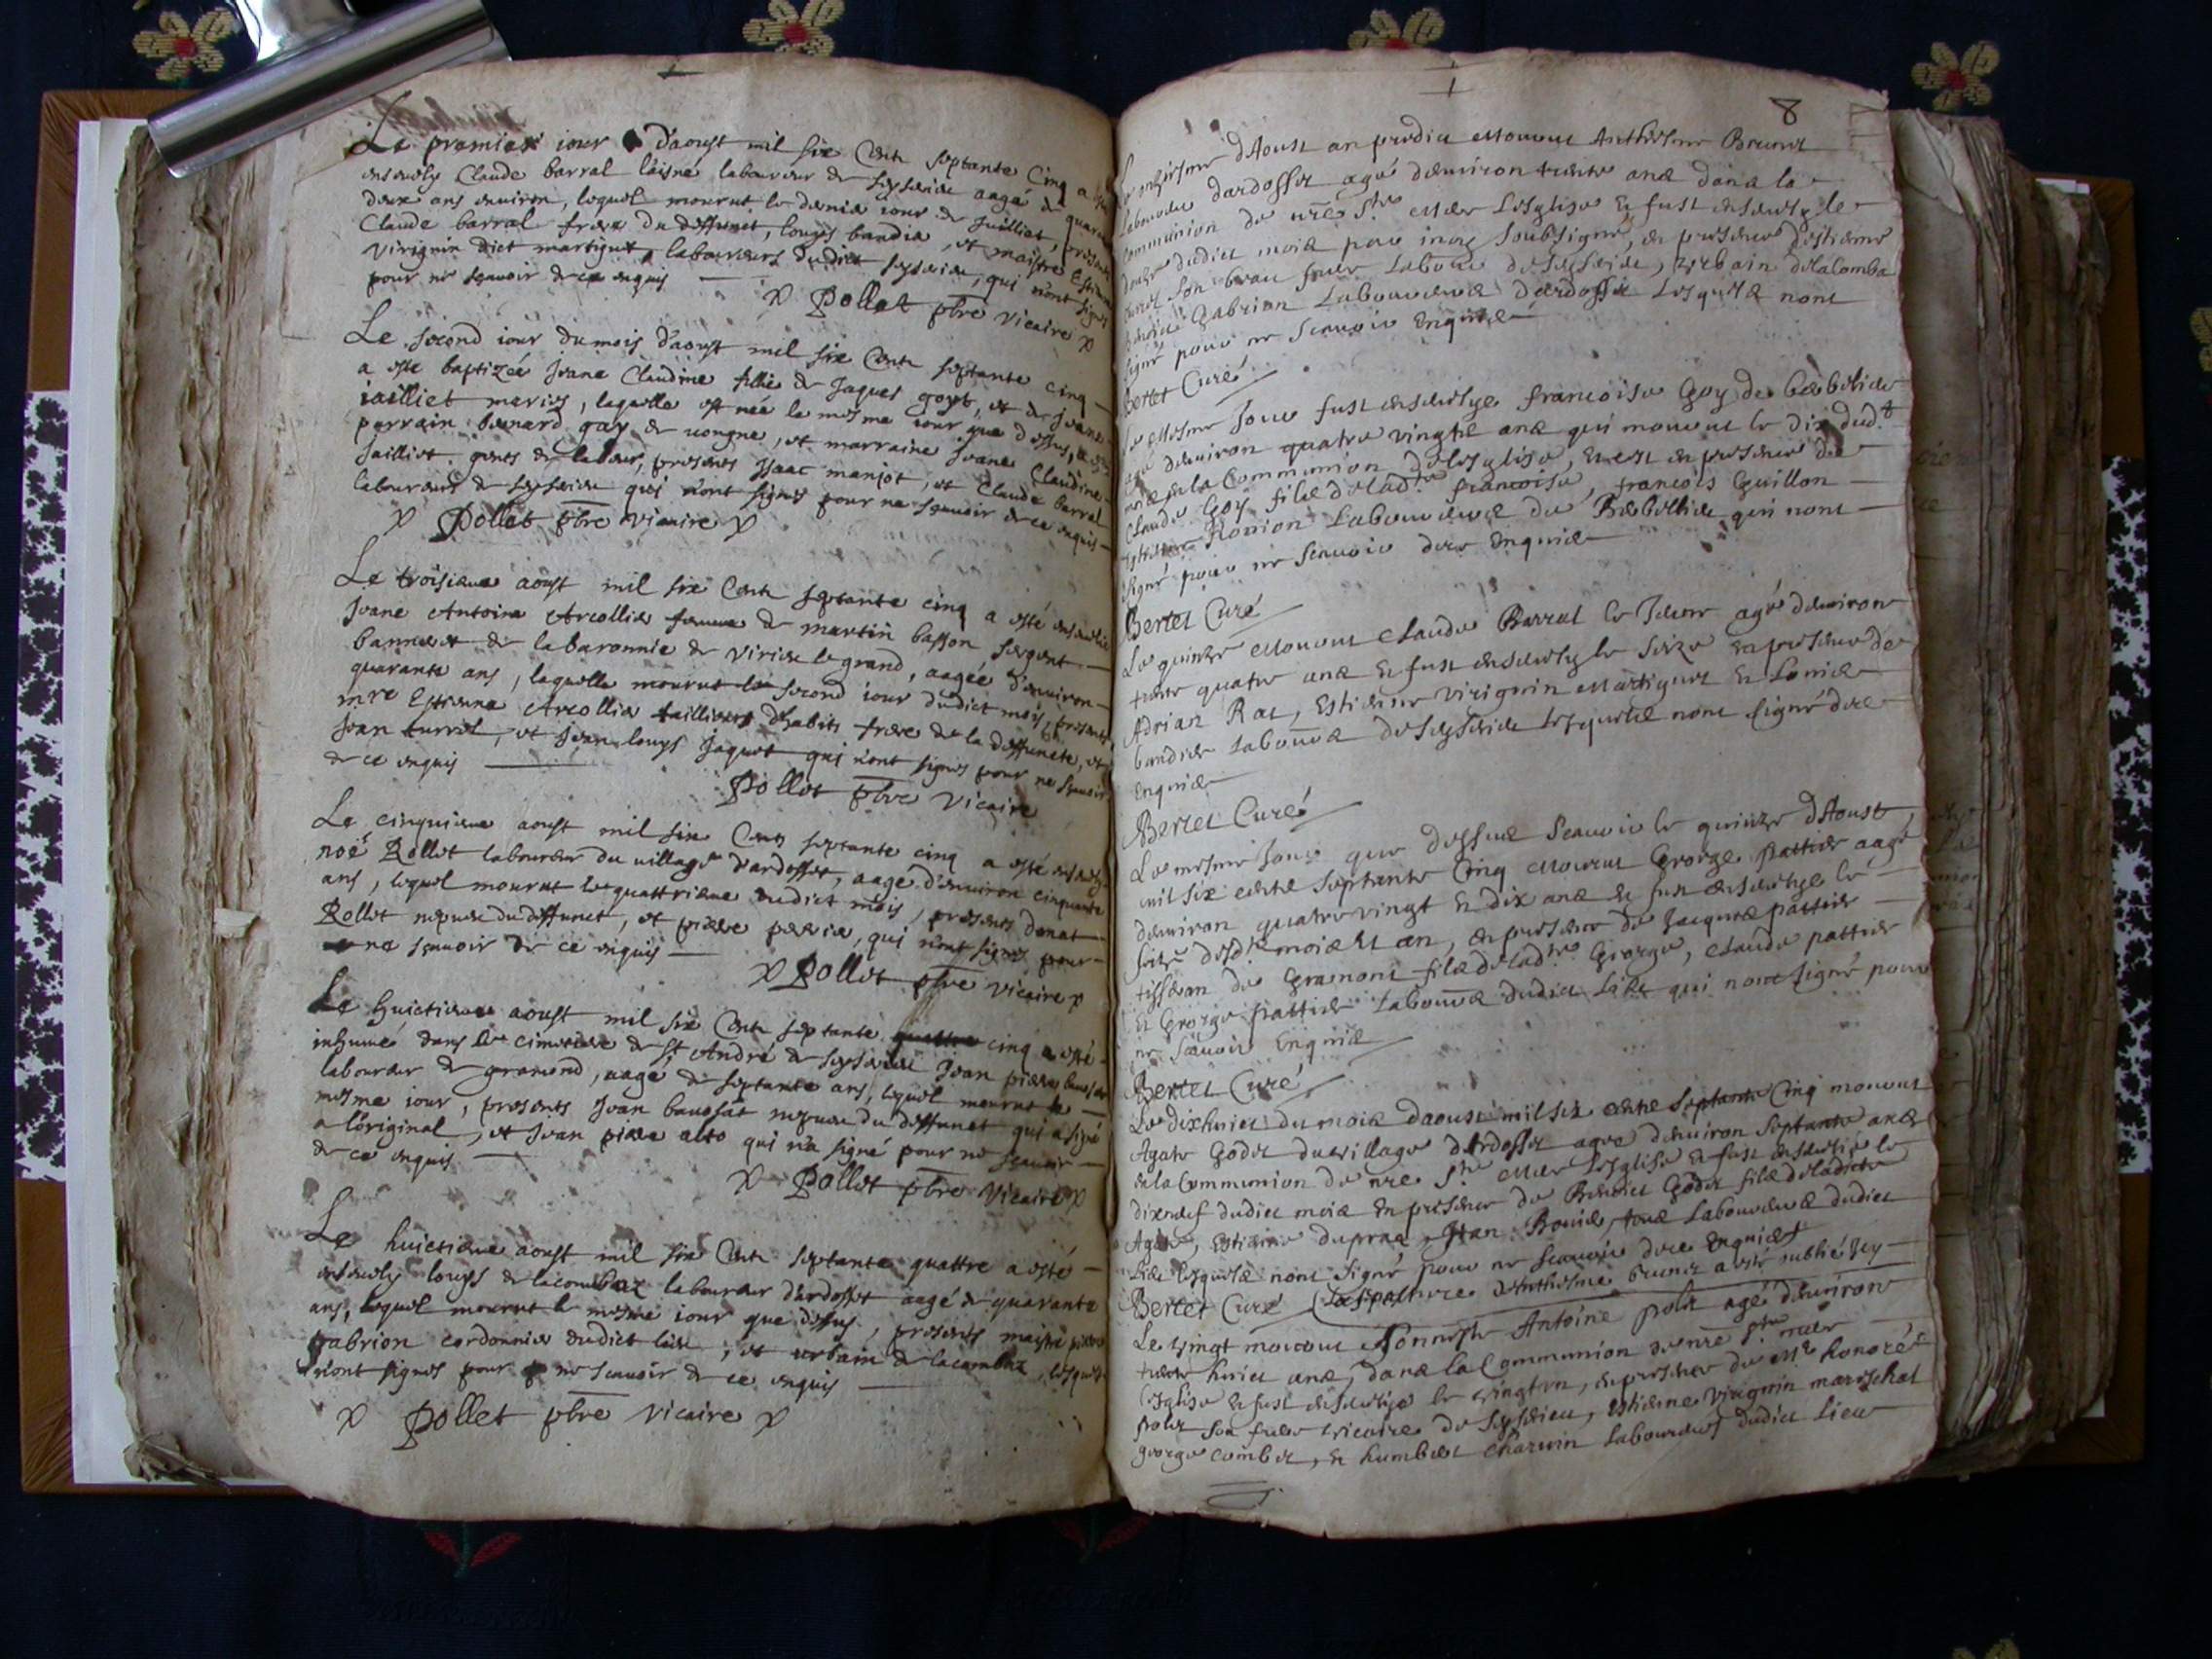 Le premier iour d'aoust mil six Cent septante Cinq a
ensevely Claude barral l'aisné laboureur de seysseriu aagé de
deux ans environ, lequel mourut le dernier iour de Juilliet,
Claude barral frere du deffunct, louys bandier, et maistre
Virignin dict martigny, laboureurs dudict seysserieu, qui n'ont signés
pour ne sçavoir de ce enquis
Pollet pbre vicaire
Le second iour du mois d'aoust mil six Cent septante cinq
a este baptizée Jeane Claudine fillie de Jaques goyet, et de Jeane
Jailliet mariés, laquelle est née le mesme iour que dessus,
parrain benard gay de vongne, et marraine Jeane Claudine
Jailliet gents de labeur, presents Isaac manjot, et Claude barral
laboureurs de seysserieu qui n'ont signés pour ne sçavoir de ce enquis
Pollet pbre vicaire
Le troisieme aoust mil six Cent septante cinq a esté ensevelie
Jeane Antoine Arcollier femme de martin basson sergent
banneret de la baronnie de Virieu le grand, aagée d'environ
quarante ans, laquelle mourut le second iour dudict mois, presents
mre Estienne Arcollier taillieurs d'habits frere de la deffuncte, et
Jean turrel, et Jean louys Jaquet qui n'ont signés pour ne sçavoir
de ce enquis
Pollet pbre vicaire
Le cinquieme aoust mil six Cents septante cinq a esté ensevely
noé Rollet laboureur du village d'ardosset, aagé d'environ cinquante
ans, lequel mourut le quattrieme dudict mois, presents donat
Rollet nepveu du deffunct, et pierre perrier, qui n'ont signés pour
ne sçavoir de ce enquis
Pollet pbre vicaire
Le huictieme aoust mil six Cent septante quattre cinq a esté
inhumé dans le cimetiere de St André de seysserieu Jean pierre
laboureur de gramond, aagé de septante ans, lequel mourut le
mesme iour, presents Jean baussat nepveu du deffunct qui a signé
a l'original, et Jean pierre alto qui n'a signé pour ne sçavoir
de ce enquis
Pollet pbre vicaire
Le huictieme aoust mil six Cent septante quattre a esté
ensevely louys de lacombaz laboureur d'ardosset aagé de quarante
ans, lequel mourut le mesme iour que dessus, presents maistre pierre
gabrion cordonnier dudict lieu, et urbain de lacombaz, lesquels
n'ont signés pour ne sçavoir de ce enquis
Pollet pbre vicaire
8
d'Aoust an predict mourut Anthesme Brunet
laboureur dardosset agé denviron trente ans dans la
Communion de nre ste mere Lesglise et fust ensevely le
dudict mois par moy soubsigné, en presence destienne
son beau frere labour de seyserieu, urbain delacomba
Gabrian Laboureurs dardosset lesquels nont
signé pour ne scavoir Enquis
Bertet Curé
Le mesme Jour fust ensevelye francoise Goy de berbellieu
denviron quatre vingts ans qui mourut le dix dudt
en la Communion delesglise, en presence de
Claude Goy fils deladte francoise, francois Guillon
Ronion Laboureurs de Berbellieu qui nont
signé pour ne scavoir dece Enquis
Bertet Curé
Le quinze mourut Claude Barral le Jeune agé denviron
trente quatre ans et fust ensevely le seize en presence de
Adrian Rat, Estienne Virignin Martiguet et Lonis
bandier Labours deseyserieu lesquels nont signé dece
Enquis
Bertet Curé
Le mesme Jour que dessus scavoir le quinze dAoust
mil six cents septante Cinq mourut George pattier aagé
denviron quatre vingt et dix ans et fust ensevelye le
seize desdt mois et an, en presence de Jacques pattier
tisseran de Gramont fils deladte George, Claude pattier
et George pattier Labours dudict Lieu qui nont signé pour
ne scavoir Enquis
Bertet Curé
Le dixhuict du mois daoust mil six cents septante Cinq mourut
Agate Godet du village dArdosset agee denviron septante ans
en la Communion de nre ste mere lesglise et fust ensevelie le
dixneuf dudict mois en presence de Benoict Godet fils deladicte
Agate, Estienne dupraz, Jean Bovier, tous Laboureurs dudict
Lieu lesquels nont signé pour ne scavoir dece Enquis
Bertet Curé (La sepulture dAnthesme brunet a esté oublié Icy
Le vingt mourut Honneste Antoine polet agé denviron
trente huict ans, dans la Communion de nre ste mere
lesglise et fust ensevelye le vingt un, en presence de Mre honoré
polet son frere vicaire de Seysérieu, Estienne Virignin mareschal
george combet, et humbert charvin laboureurs dudict lieu